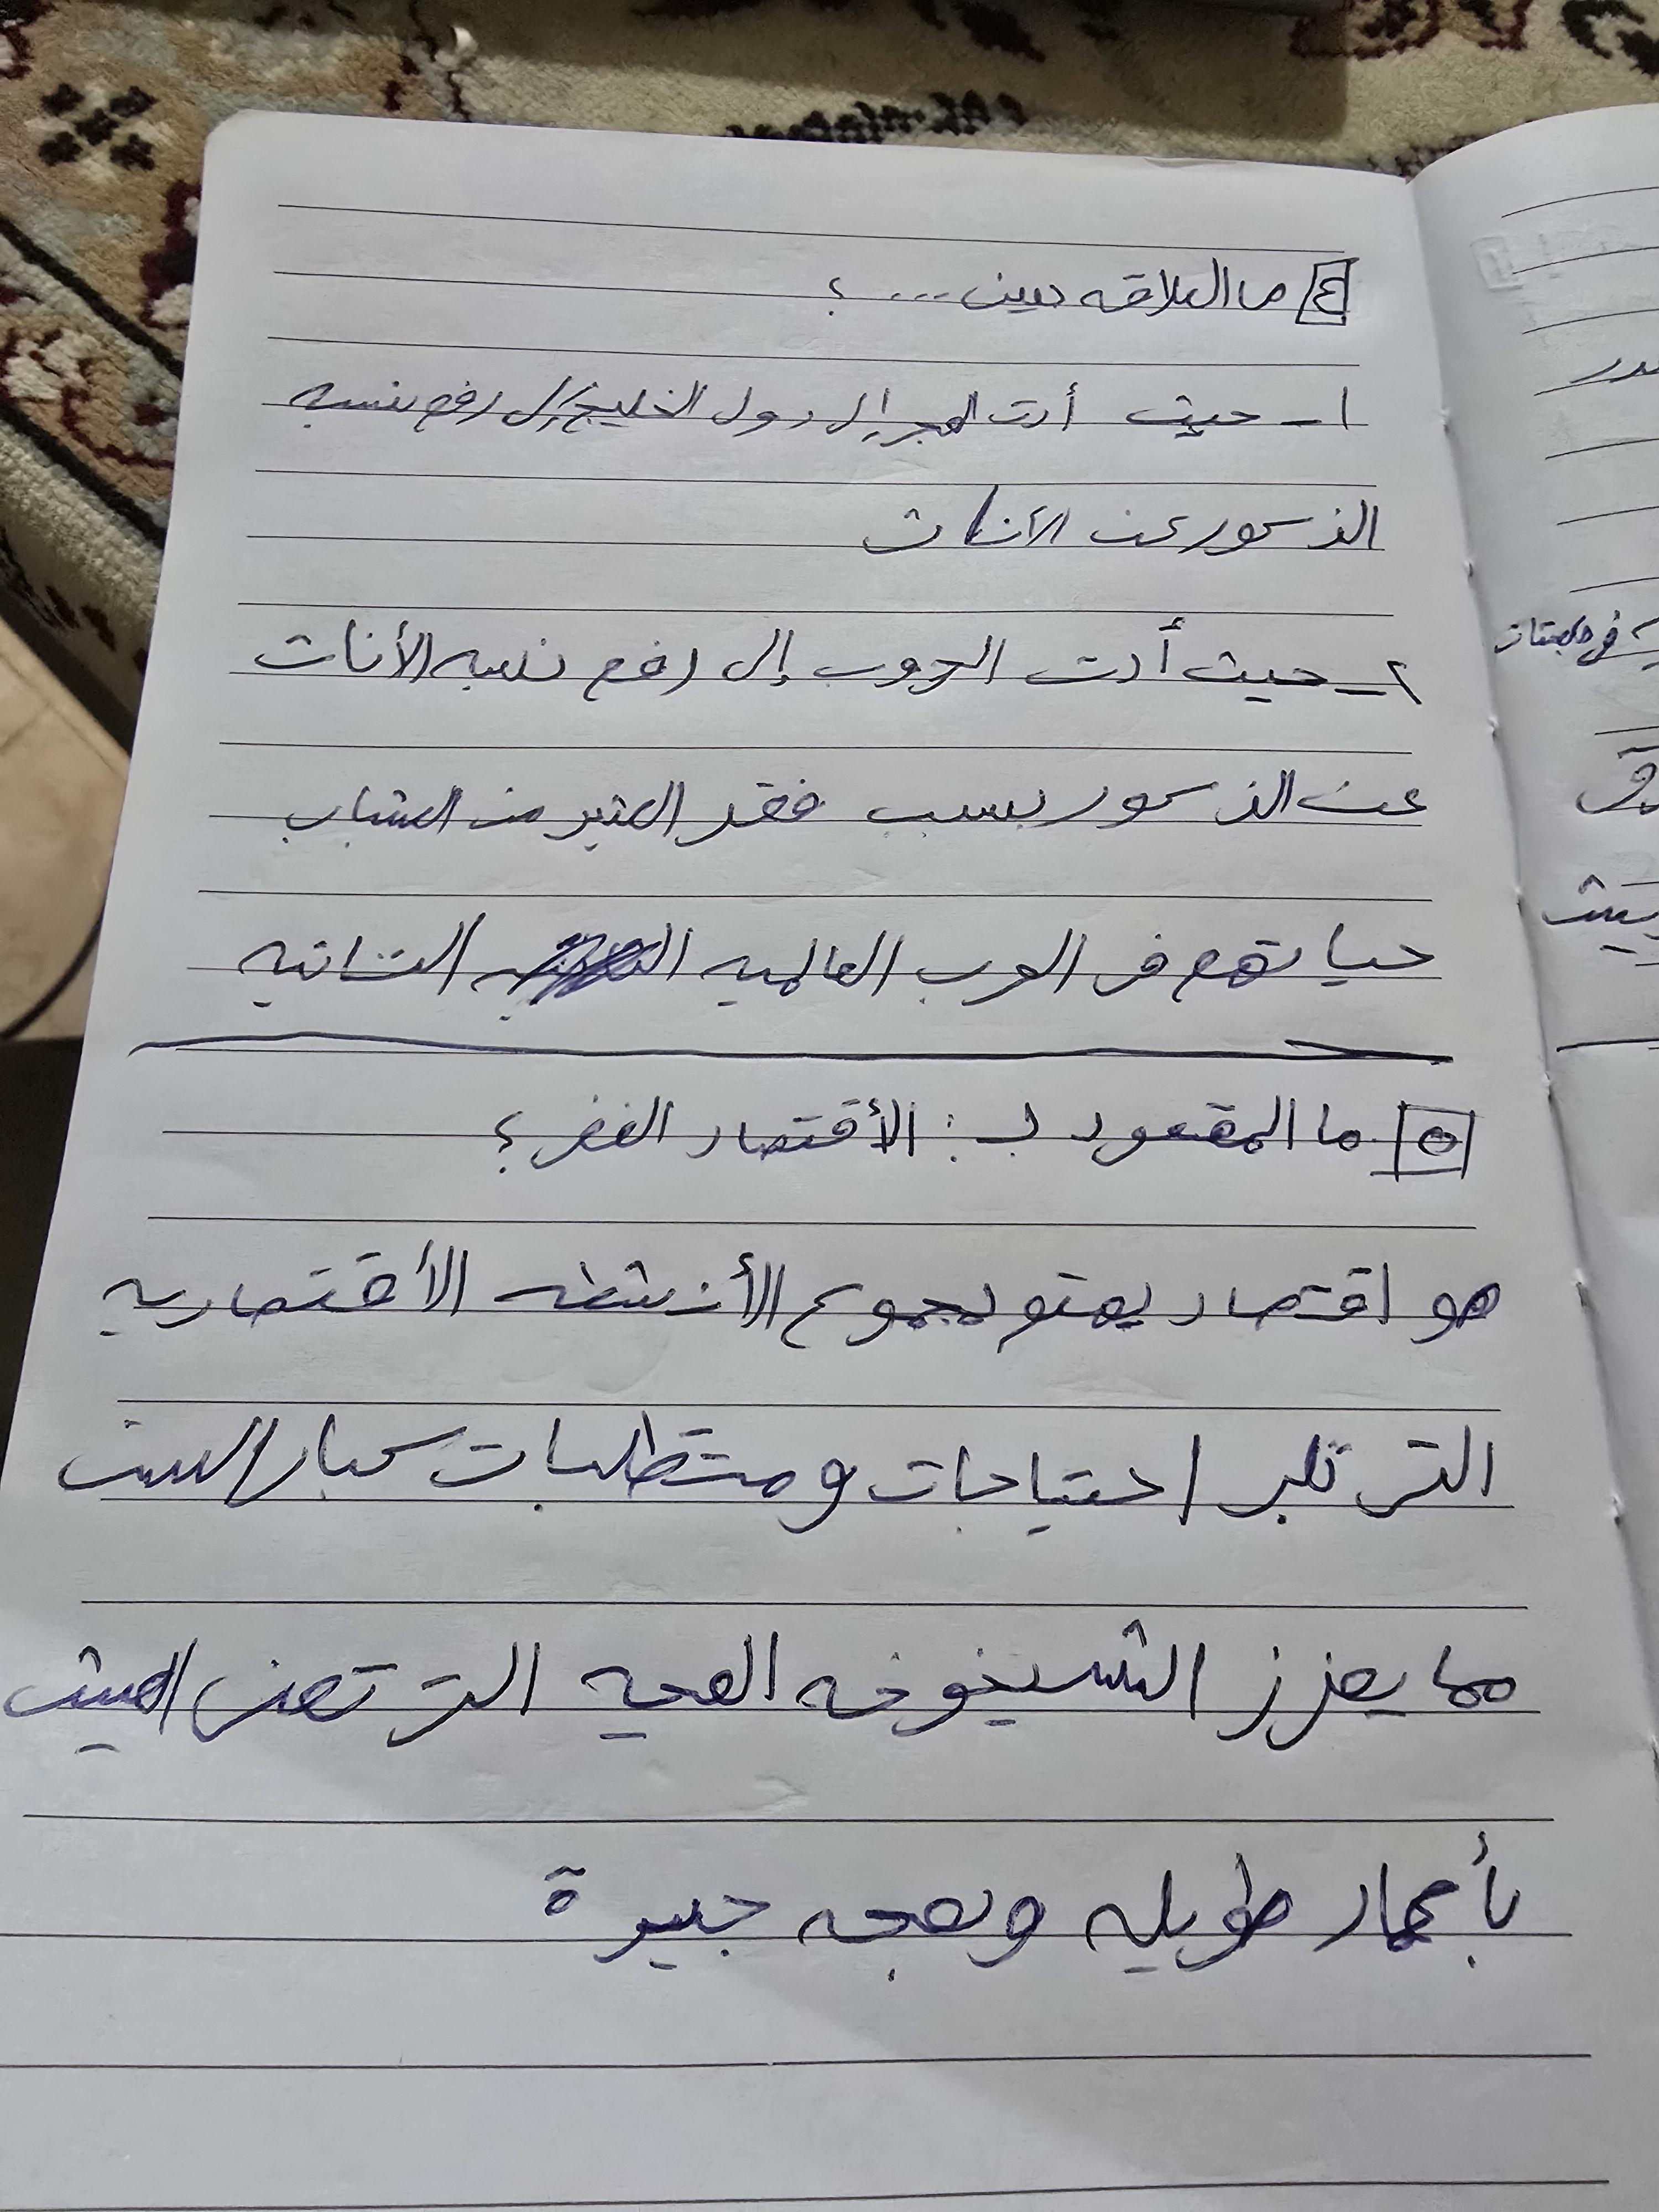 ٤ ما العلاقه بين ... ؟
١ - حيث أدت الهجر إلى دول الخليج إلى رفع نسبه
الذكور عن الأناث
٢ - حيث أدت الحروب إلى رفع نسبه الأناث
عن الذكور بسبب فقد الكثير من الشباب
حياتهم فى الحرب العالميه الثانيه
٥ ما المقصود بـ : الأقتصاد الفضى ؟
هو اقتصاد يهتم بجموع الأنشطه الأقتصاديه
التى تلبى احتياجات ومتطلبات كبار السن
مما يعزز الشيخوخه الصحيه التى تعنى العيش
بأعمار طويله وصحه جيدة